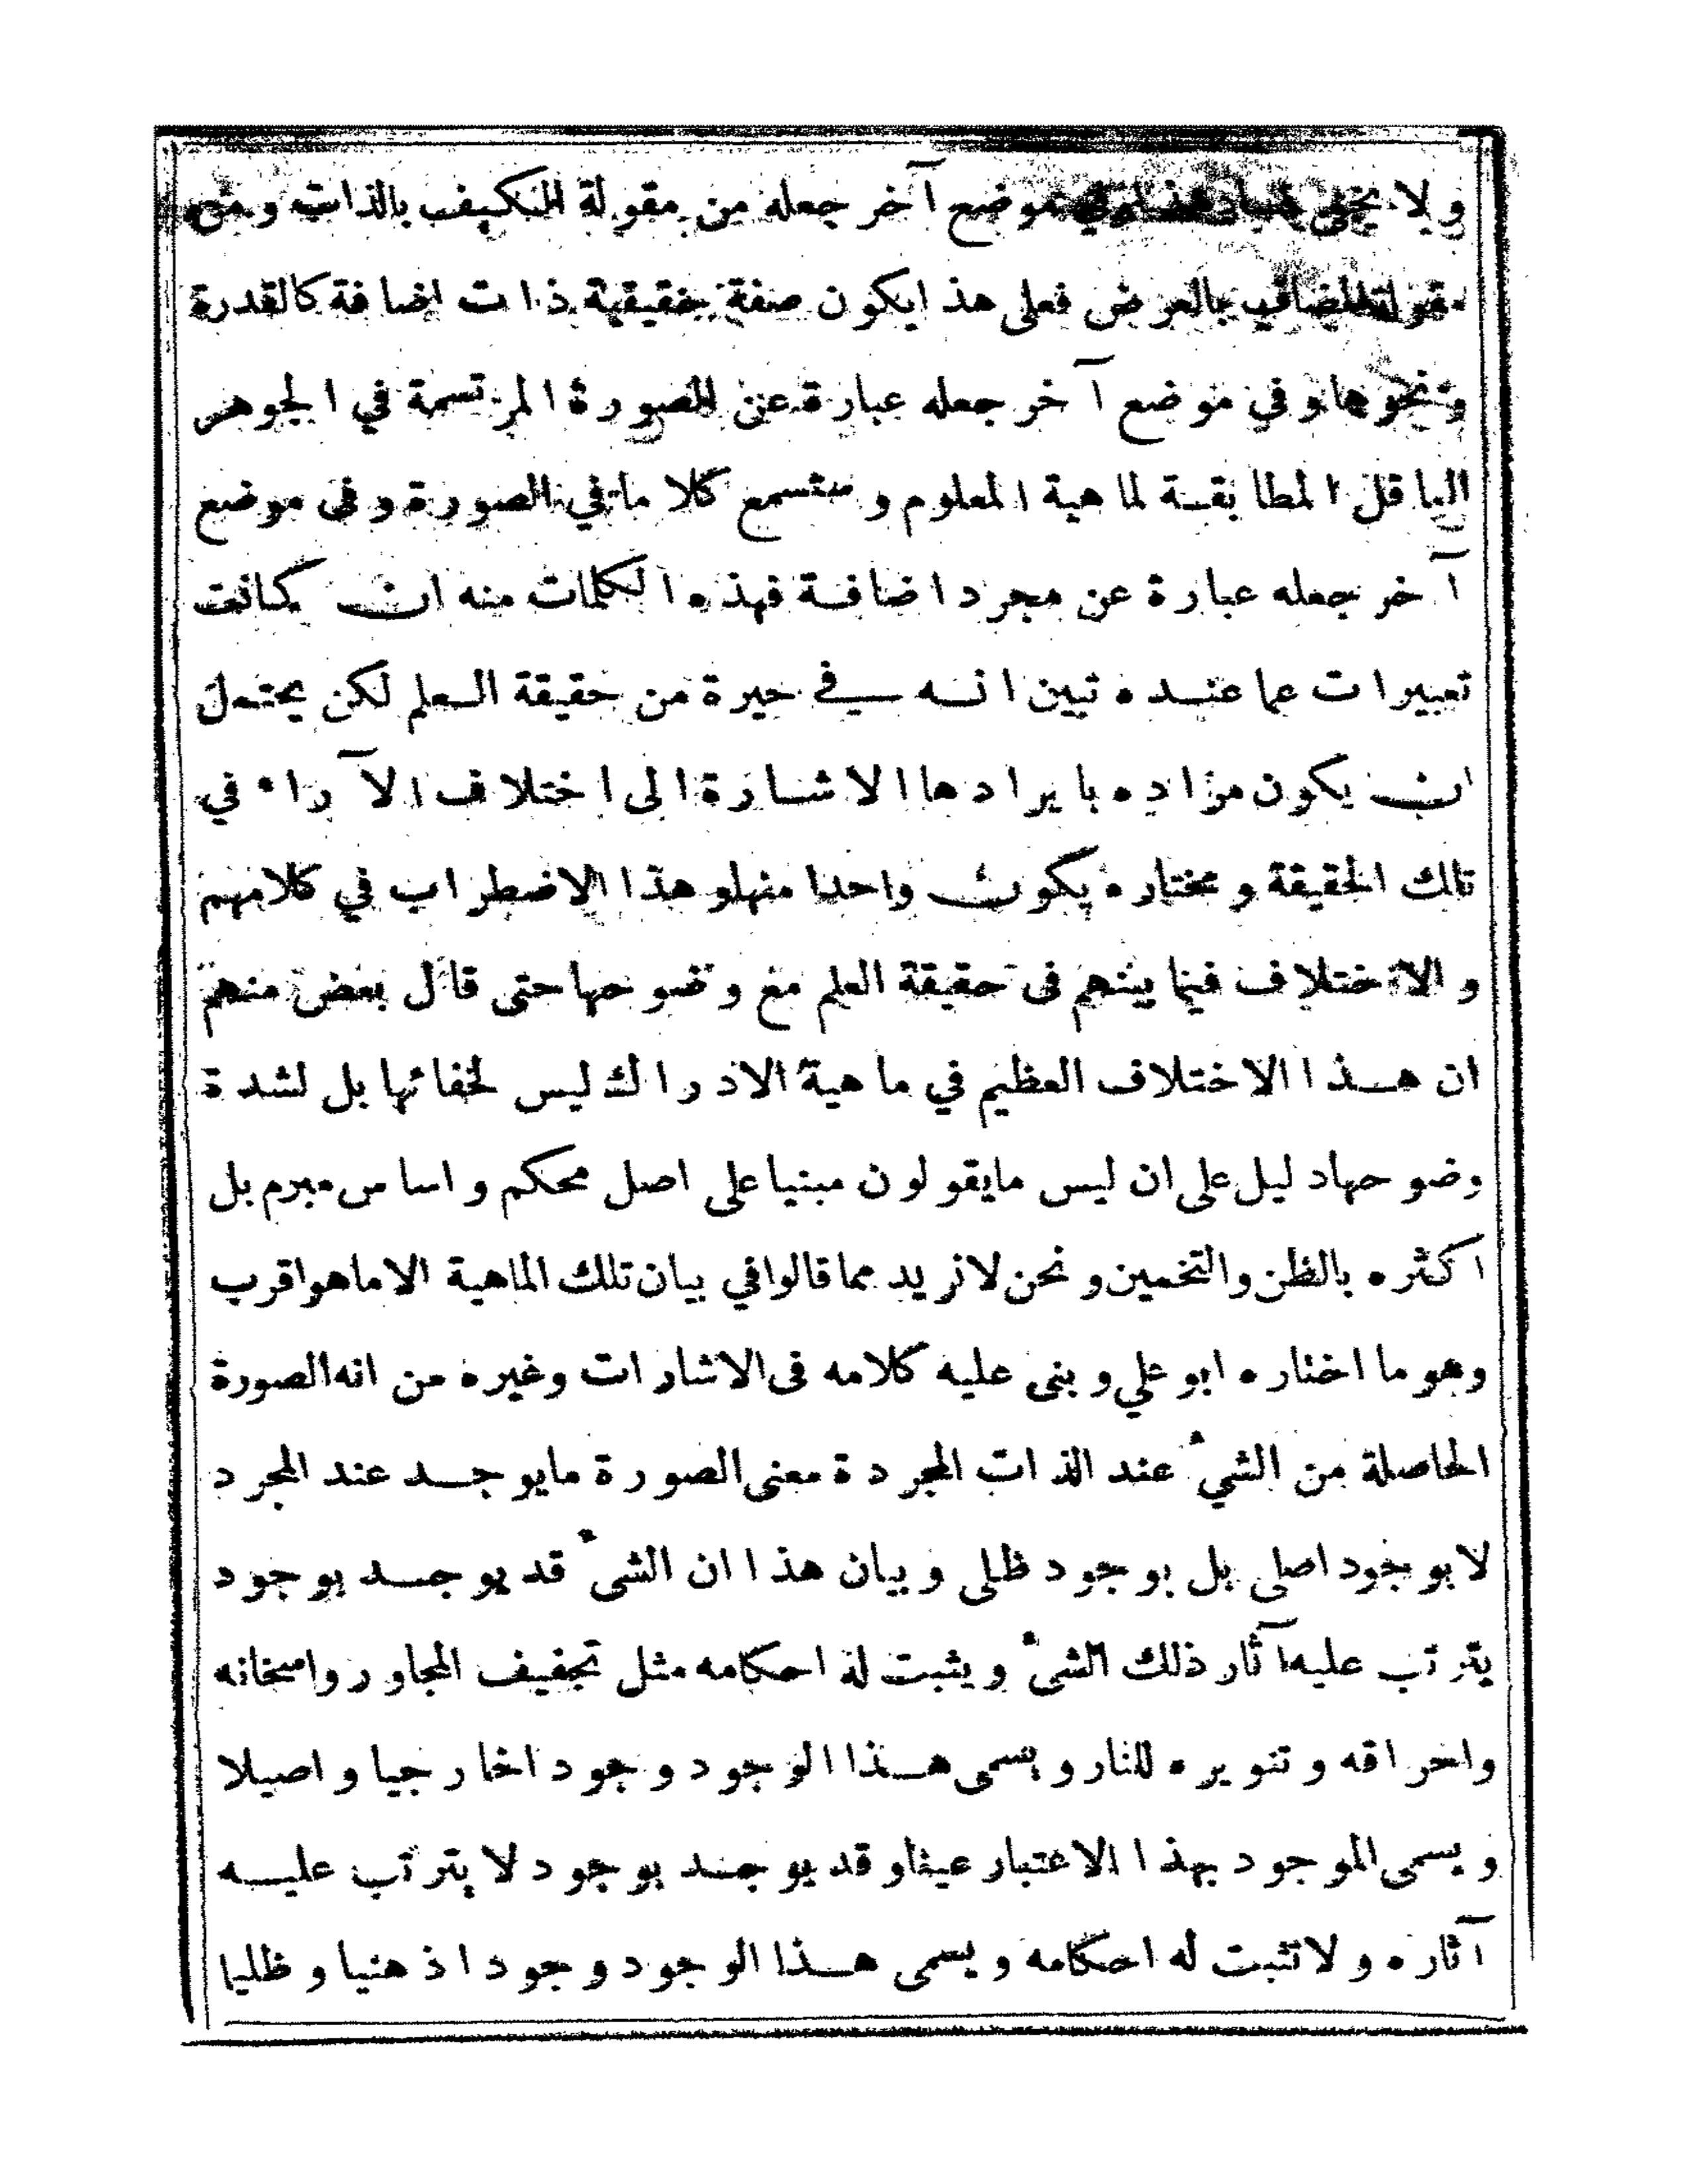 ولا يخفى فساد هذا وفي موضع آخر جعله من مقولة الكيف بالذات ومن
مقولة المضاف بالعرض فعلى هذا يكون صفة حقيقية ذات اضافة كالقدرة
ونحوها وفي موضع آخر جعله عبارة عن الصورة المرتسمة في الجوهر
العاقل المطابقة لماهية المعلوم وستسمع كلاما في الصورة وفى موضع
آخر جعله عبارة عن مجرد اضافة فهذه الكلمات منه ان كانت
تعبيرات عما عنده تبين انه في حيرة من حقيقة العلم لكن يحتمل
ان يكون مراده بايرادها الاشارة الى اختلاف الآراء في
تلك الحقيقة ومختاره يكون واحدا منها وهذا الاضطراب في كلامهم
والاختلاف فيما بينهم فى حقيقة العلم مع وضوحها حتى قال بعض منهم
ان هذا الاختلاف العظيم في ماهية الادراك ليس لخفائها بل لشدة
وضوحها دليل على ان ليس مايقولون مبنيا على اصل محكم واساس مبرم بل
اكثره بالظن والتخمين ونحن لانريد مما قالوا في بيان تلك الماهية الا ماهو اقرب
وهو ما اختاره ابو علي وبنى عليه كلامه فى الاشارات وغيره من انه الصورة
الحاصلة من الشيء عند الذات المجردة معنى الصورة مايوجد عند المجرد
لا بوجود اصلى بل بوجود ظلى وبيان هذا ان الشىء قد يوجد بوجود
يترتب عليه آثار ذلك الشىء ويثبت له احكامه مثل تجفيف المجاور واسخانه
واحراقه وتنويره للنار ويسمى هذا الوجود وجودا خارجيا واصيلا
ويسمى الموجود بهذا الاعتبار عينا وقد يوجد بوجود لا يترتب عليه
آثاره ولا تثبت له احكامه ويسمى هذا الوجود وجودا ذهنيا وظليا